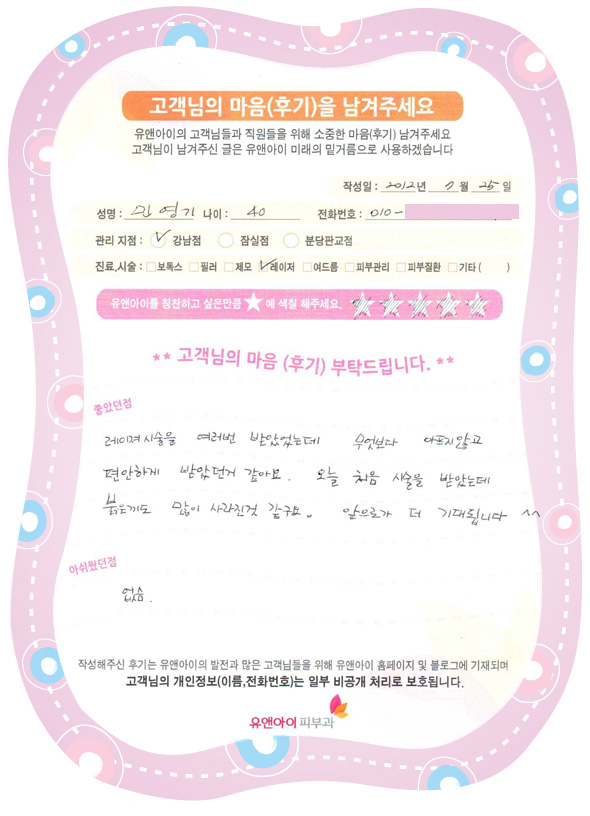 고객님의 마음(후기)을 남겨주세요
유앤아이의 고객님들과 직원들을 위해 소중한 마음(후기) 남겨주세요
고객님이 남겨주신 글은 유앤아이 미래의 밑거름으로 사용하겠습니다
작성일 : 2012년 7월 25일
성명 : 민영기 나이 : 40 전화번호 : 010-
관리 지점 : 강남점 잠실점 분당판교점
진료,시술 : 보톡스 필러 제모 레이저 여드름 피부관리 피부질환 기타 ( )
유앤아이를 칭찬하고 싶은만큼 ★ 에 색칠 해주세요.
** 고객님의 마음 (후기) 부탁드립니다. **
좋았던점
레이져시술을 여러번 받았었는데 무엇보다 아프지않고
편안하게 받았던거 같아요. 오늘 처음 시술을 받았는데
붉은끼도 많이 사라진것 같구요. 앞으로가 더 기대됩니다 ^^
아쉬웠던점
없음.
작성해주신 후기는 유앤아이의 발전과 많은 고객님들을 위해 유앤아이 홈페이지 및 블로그에 기재되며
고객님의 개인정보(이름,전화번호)는 일부 비공개 처리로 보호됩니다.
유앤아이 피부과